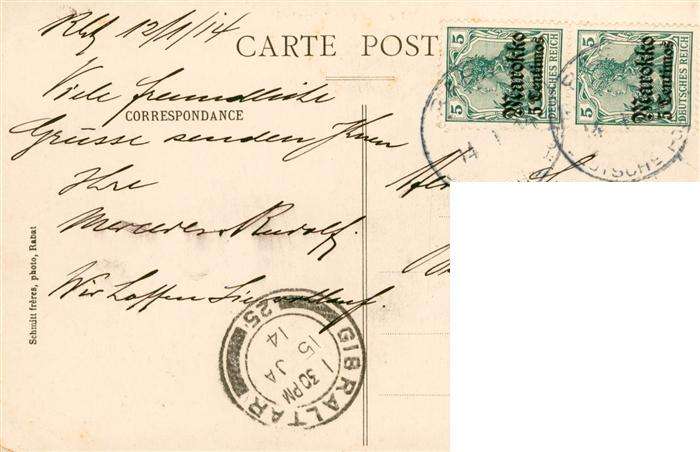 Rbt 12/1/14
CARTE POST
Viele freundliche
CORRESPONDANCE
Grüsse senden Ihnen
Ihre
Mercedes Rudolf.
Wir hoffen
Schmitt frères, photo, Rabat
5 Marokko 5 Centimos DEUTSCHES REICH
5 Marokko 5 Centimos DEUTSCHES REICH
GIBRALTAR
1 30 PM
15 JA
14
25